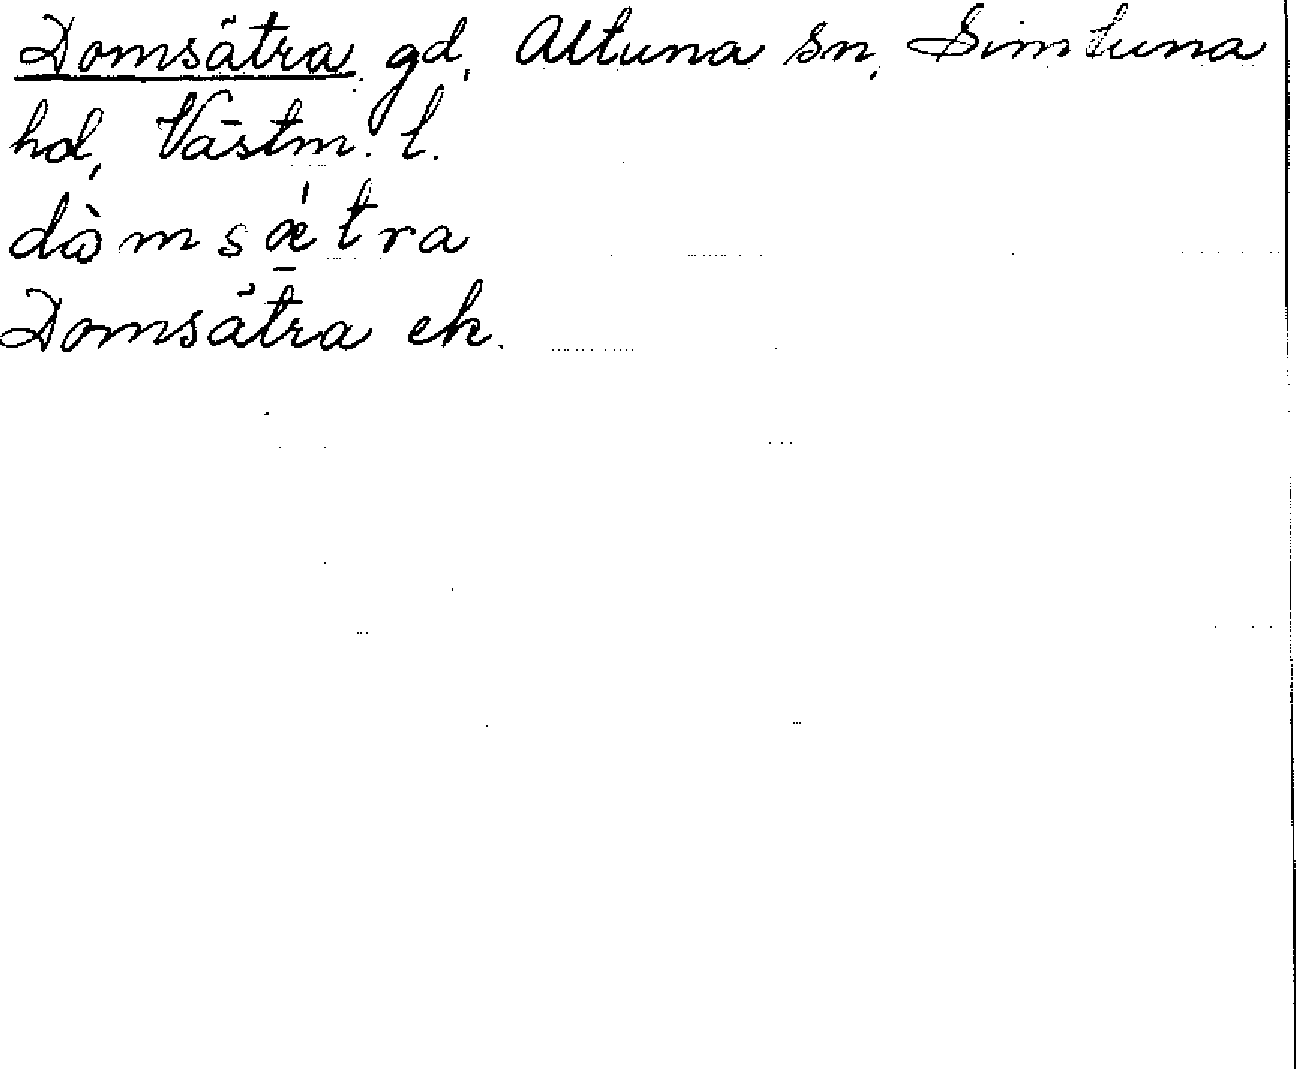 Domsätra gd, Altuna sn, Simtuna
hd, Västm. l.
dòmsǽ̱tra
Domsätra ek.